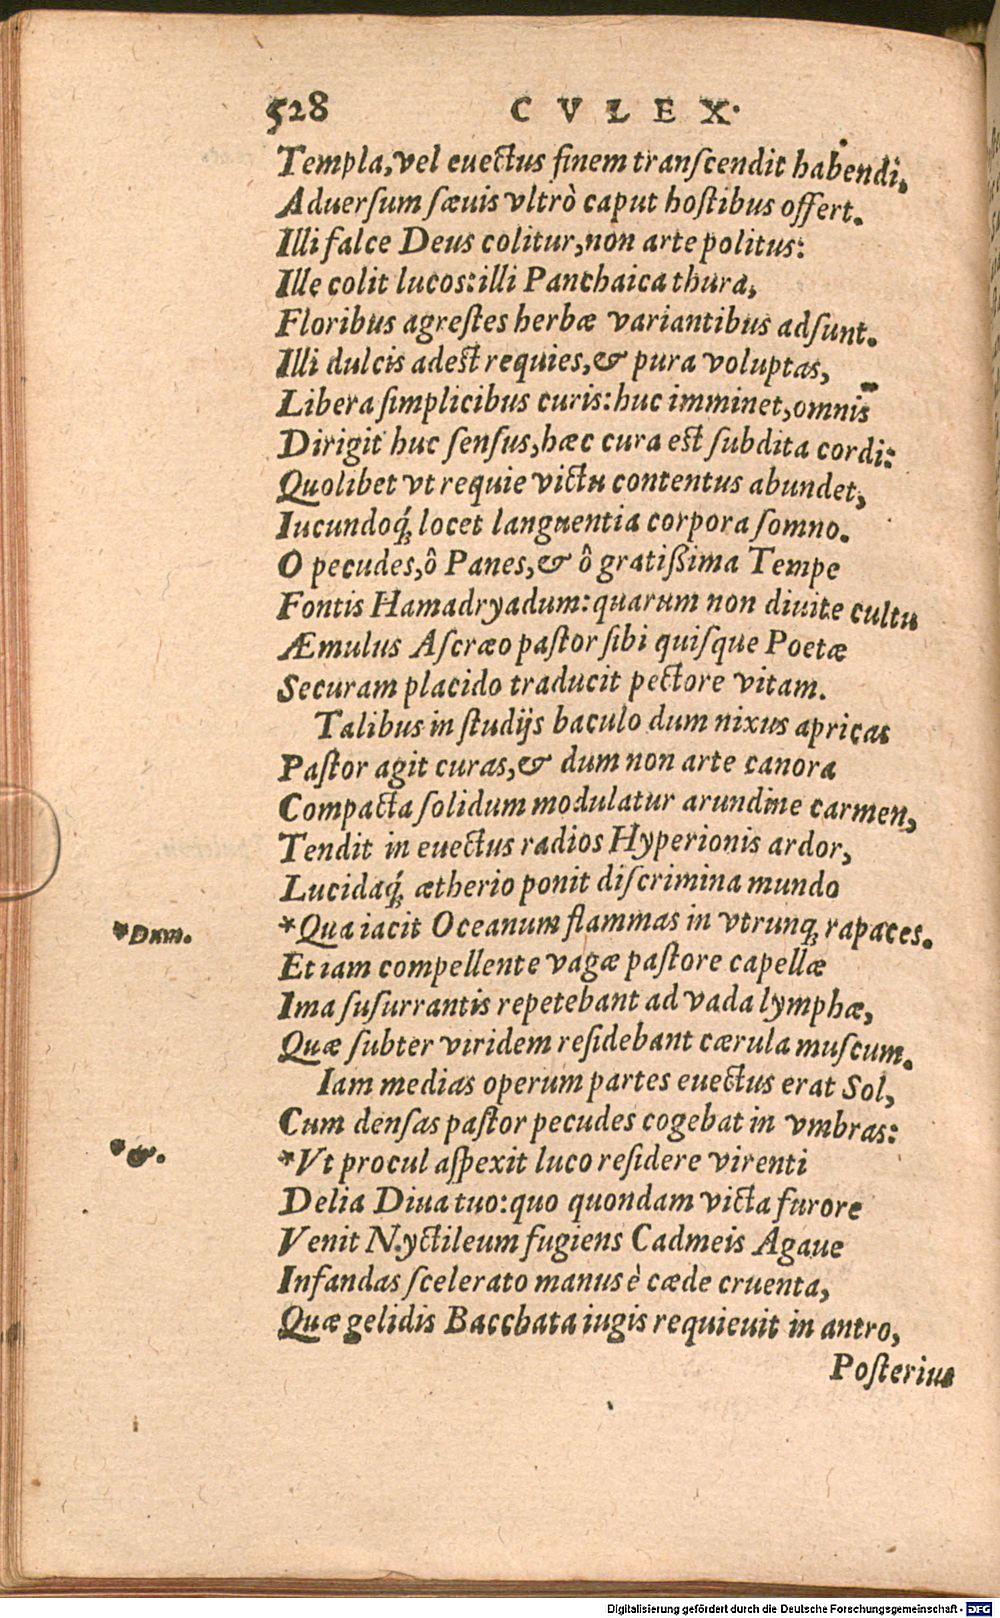 528 CVLEX.
Templa, vel euectus finem transcendit habendi,
Aduersum sæuis vltrò caput hostibus offert.
Illi falce Deus colitur, non arte politus:
Ille colit lucos: illi Panchaica thura,
Floribus agrestes herbæ variantibus adsunt.
Illi dulcis adest requies, & pura voluptas,
Libera simplicibus curis: huc imminet, omnis
Dirigit huc sensus, hæc cura est subdita cordi:
Quolibet vt requie victu contentus abundet,
Iucundoq́; locet languentia corpora somno.
O pecudes, ô Panes, & ô gratißima Tempe
Fontis Hamadryadum: quarum non diuite cultu
Æmulus Ascræo pastor sibi quisque Poetæ
Securam placido traducit pectore vitam.
Talibus in studijs baculo dum nixus apricas
Pastor agit curas, & dum non arte canora
Compacta solidum modulatur arundine carmen,
Tendit in euectus radios Hyperionis ardor,
Lucidaq́; ætherio ponit discrimina mundo
*Dum. *Qua iacit Oceanum flammas in vtrunq; rapaces.
Et iam compellente vagæ pastore capellæ
Ima susurrantis repetebant ad vada lymphæ,
Quæ subter viridem residebant cærula muscum.
Iam medias operum partes euectus erat Sol,
Cum densas pastor pecudes cogebat in vmbras:
*&. *Vt procul aspexit luco residere virenti
Delia Diua tuo: quo quondam victa furore
Venit Nyctileum fugiens Cadmeis Agaue
Infandas scelerato manus è cæde cruenta,
Quæ gelidis Bacchata iugis requieuit in antro,
Posterius
Digitalisierung gefördert durch die Deutsche Forschungsgemeinschaft - DFG